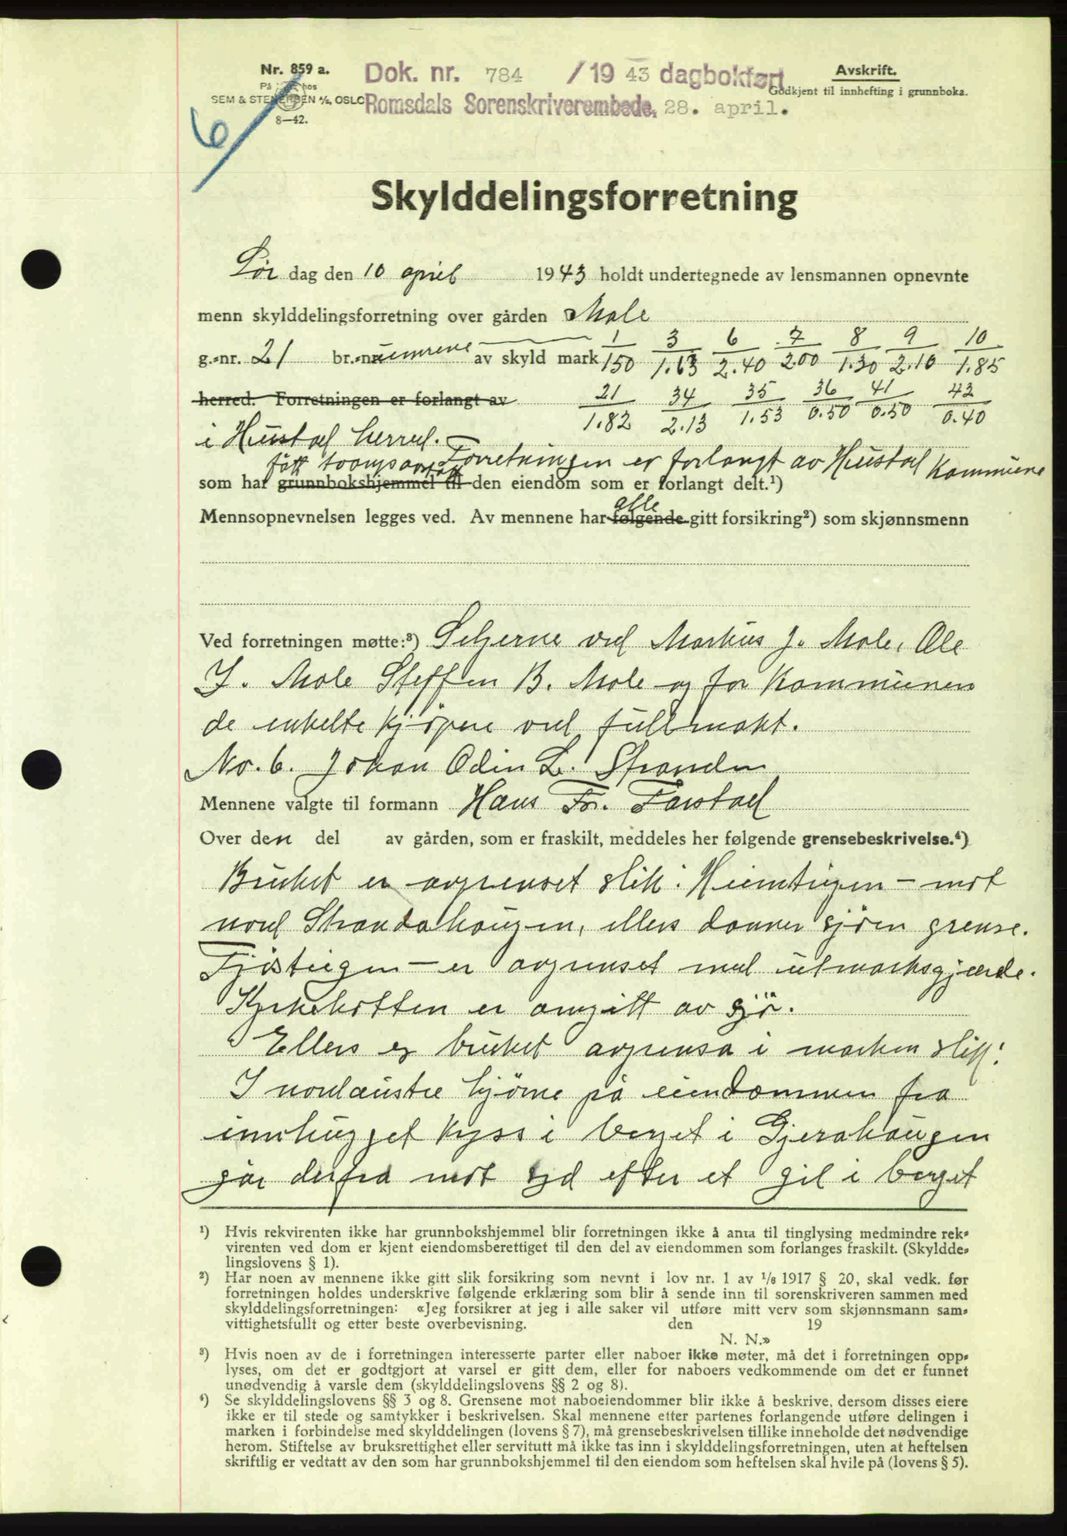 Nr. 859 a.
På hos
SEM & STENERSEN A/S, OSLO
8—42.
6
Dok. nr. 784 /19 43 dagbokført
Romsdals Sorenskriverembede, 28. april.
Avskrift.
Godkjent til innhefting i grunnboka.
Skylddelingsforretning
Lør dag den 10 april 1943 holdt undertegnede av lensmannen opnevnte
menn skylddelingsforretning over gården Male
g.-nr. 21 br.-numrene av skyld mark 1/150 3/1.63 6/2.40 7/2.00 8/1.30 9/2.10 10/1.85
herred. Forretningen er forlangt av 21/1.82 34/2.13 35/1.53 36/0.50 41/0.50 42/0.40
i Hustad herred. Forretningen er forlangt av Hustad Kommune
som har fått grunnbokshjemmel til den eiendom som er forlangt delt.¹)
Mennsopnevnelsen legges ved. Av mennene har følgende alle gitt forsikring²) som skjønnsmenn
Ved forretningen møtte:³) Selgerne ved Markus J. Male, Ole
J. Male Steffen B. Male og for Kommunen
de enkelte kjøpere ved fullmakt.
No. 6. Johan Odin L. Stranden
Mennene valgte til formann Hans Fr. Farstad
Over den del av gården, som er fraskilt, meddeles her følgende grensebeskrivelse.⁴)
Bruket er avgrenset slik: Heimteigen – mot
nord Strandahaugen, ellers danner sjøen grense.
Fjøsteigen – er avgrenset med utmarksgjærde.
er omgitt av sjø.
Ellers er bruket avgrensa i marken slik:
I nordaustre hjørne på eiendommen fra
innhugget kyss i berget i Gjerahaugen
går derfra mot syd efter et gil i berget
¹) Hvis rekvirenten ikke har grunnbokshjemmel blir forretningen ikke å anta til tinglysing medmindre rek-
virenten ved dom er kjent eiendomsberettiget til den del av eiendommen som forlanges fraskilt. (Skyldde-
lingslovens § 1).
²) Har noen av mennene ikke gitt slik forsikring som nevnt i lov nr. 1 av 1/8 1917 § 20, skal vedk. før
forretningen holdes underskrive følgende erklæring som blir å sende inn til sorenskriveren sammen med
skylddelingsforretningen: «Jeg forsikrer at jeg i alle saker vil utføre mitt verv som skjønnsmann sam-
vittighetsfullt og etter beste overbevisning. den 19
N. N.»
³) Hvis noen av de i forretningen interesserte parter eller naboer ikke møter, må det i forretningen opp-
lyses, om det er godtgjort at varsel er gitt dem, eller for naboers vedkommende om det er funnet
unødvendig å varsle dem (skylddelingslovens §§ 2 og 8).
⁴) Se skylddelingslovens §§ 3 og 8. Grensene mot naboeiendommer blir ikke å beskrive, dersom disses eiere
ikke er til stede og samtykker i beskrivelsen. Skal mennene etter partenes forlangende utføre delingen i
marken i forbindelse med skylddelingen (lovens § 7), må grensebeskrivelsen tillike inneholde det nødvendige
herom. Stiftelse av bruksrettighet eller servitutt må ikke tas inn i skylddelingsforretningen, uten at heftelsen
skriftlig er vedtatt av den som har grunnbokshjemmel til den eiendom som heftelsen skal hvile på (lovens § 5).